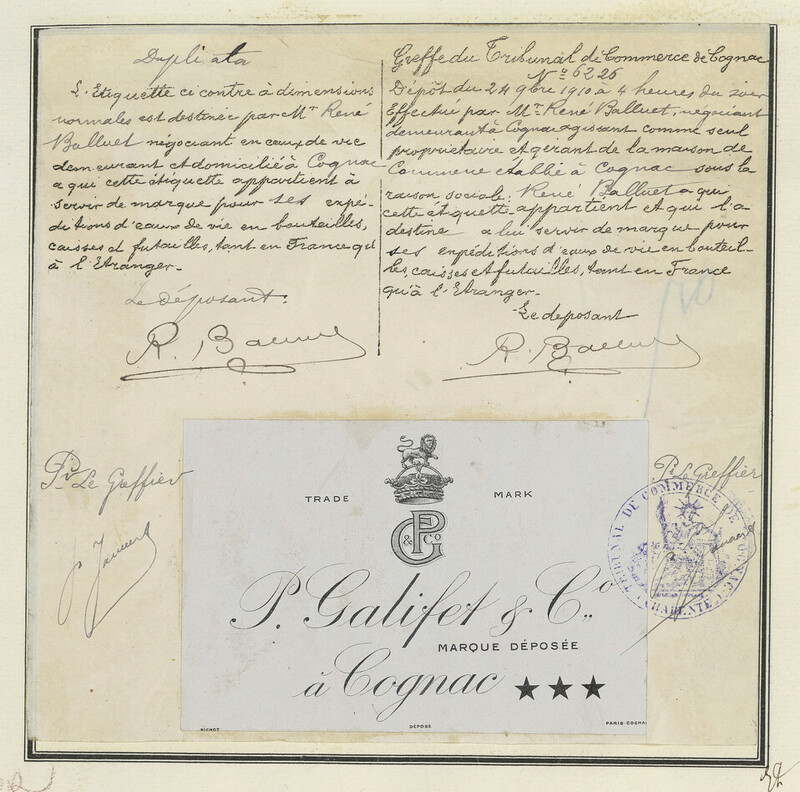 Duplicata
L'Etiquette ci contre à dimensions
normales est destinée par Mr René
Balluet négociant en eaux de vie
demeurant et domicilié à Cognac
a qui cette étiquette appartient à
servir de marque pour ses expé-
ditions d'eaux de vie en bouteilles,
caisses et futailles, tant en France qu'
à l'Etranger.
Le déposant:
R. Balluet
Greffe du Tribunal de Commerce de Cognac
No 6226
Dépôt du 24 9bre 1910 à 4 heures du soir
Effectué par Mr René Balluet, négociant
demeurant à Cognac agissant comme seul
propriétaire et gérant de la maison de
Commerce établie à Cognac sous la
raison sociale: René Balluet a qui
cette étiquette appartient et qui l'a
destine a lui servir de marque pour
ses expéditions d'eaux de vie en bouteil-
les, caisses et futailles, tant en France
qu'à l'Etranger.
Le deposant
R. Balluet
Pr Le Greffier
Pr Le Greffier
TRIBUNAL DE COMMERCE DE COGNAC
CHARENTE
TRADE MARK
G P & Co
P. Galifet & Co..
MARQUE DÉPOSÉE
à Cognac ★★★
DÉPOSÉ
PARIS-COGNAC